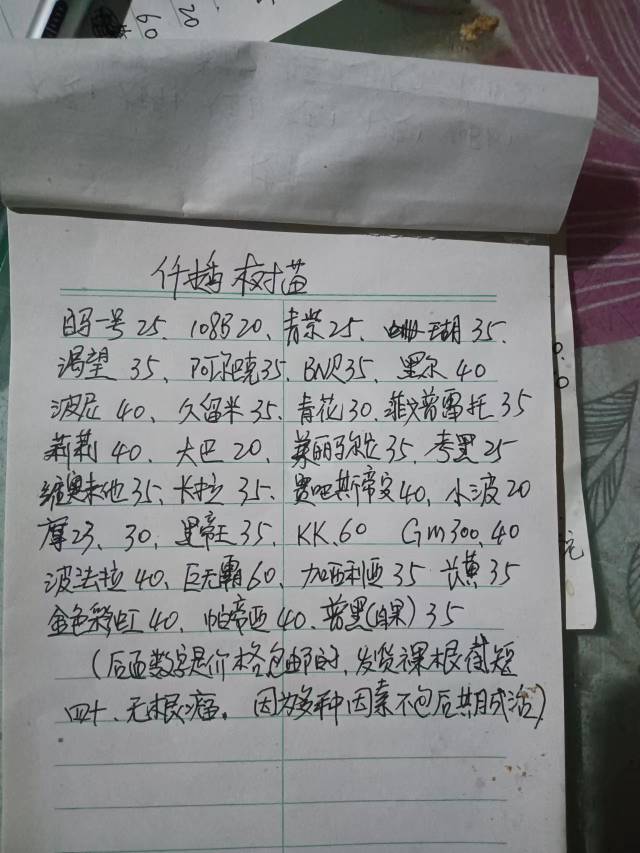 仟播树苗
日马一号25、108B20、青柴25、瑚35、
渴望35、阿尔克35、BNR35、黑尔40
波尼40、久留米35、青花30、维文普雷托35
莉莉40、大巴20、美丽玛尔比35、李黑25
维奥未他35、卡拉35、贵吧斯帝安40、小波20
摩23、30、黑帝王35、KK、60 Gm300、40
波法拉40、巨无霸60、加西利亚35 长黄35
金色彩虹40、帕蒂亚40、普黑(自果)35
(后面数字是价格包邮的,发货裸根截短
四十、无根瘤。因为多种因素不包后期成活)